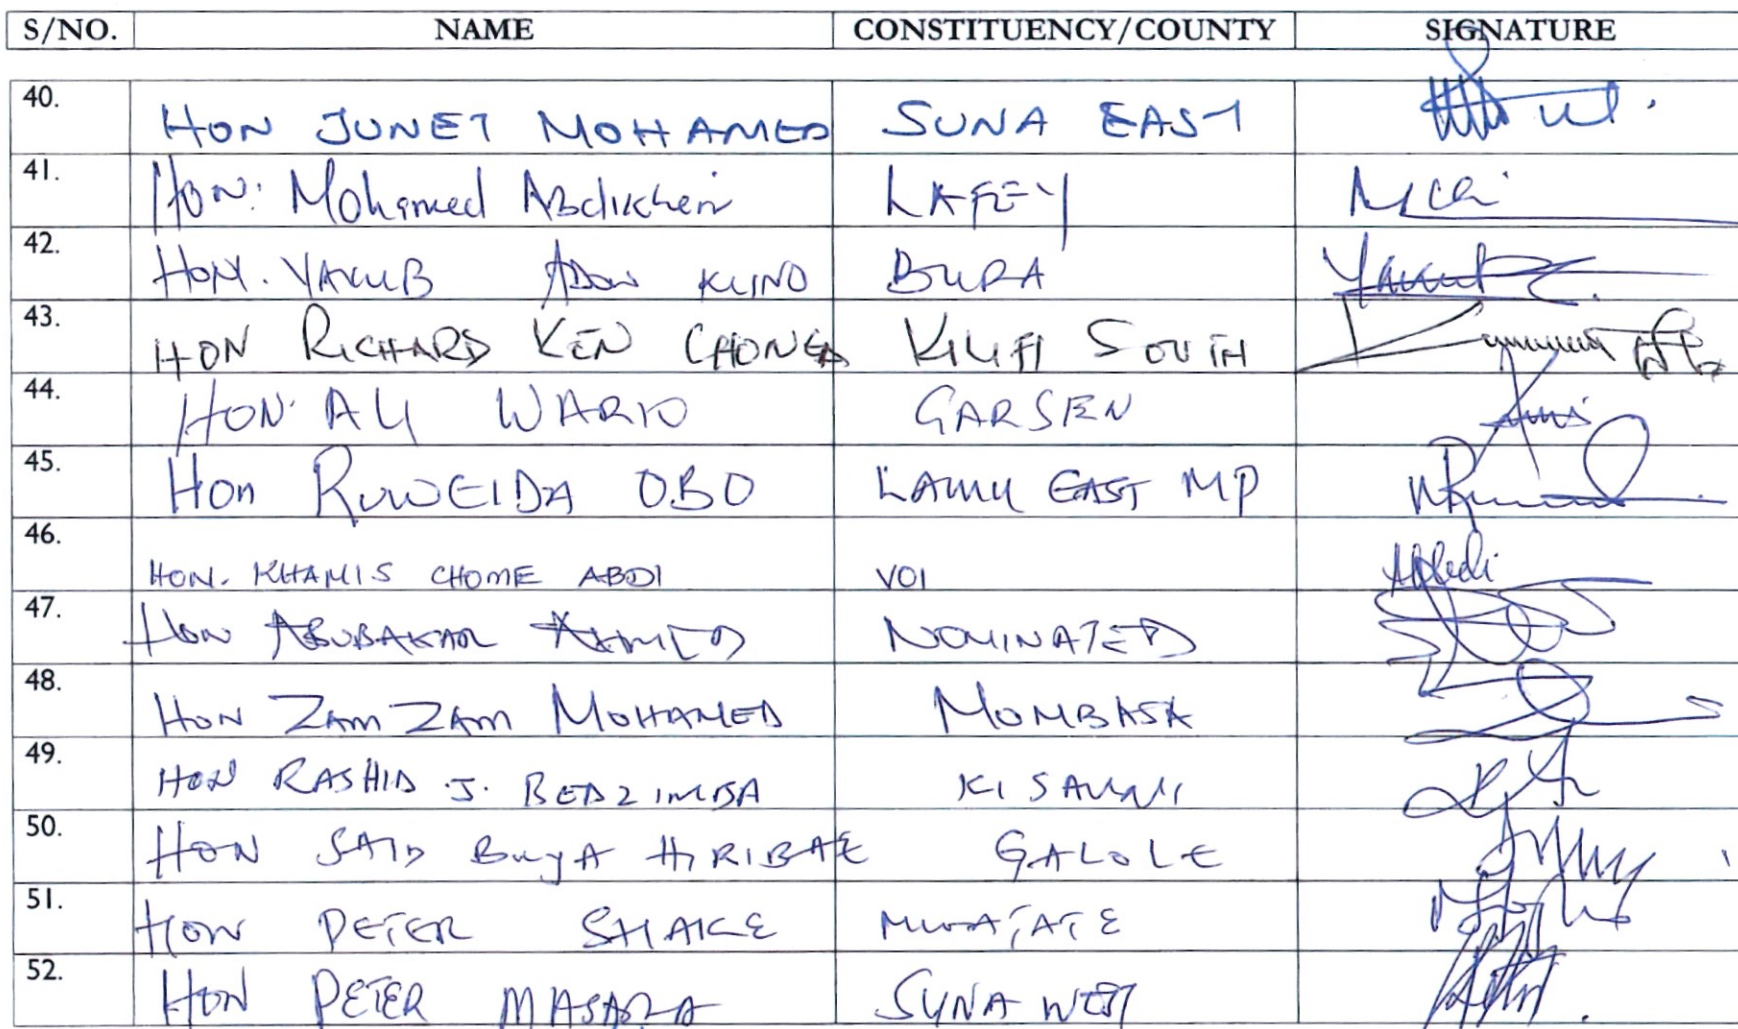 S/NO. NAME CONSTITUENCY/COUNTY SIGNATURE
40. HON JUNET MOHAMED SUNA EAST
41. Hon: Mohamed Abdikheir LAFEY
42. HON. YAKUB ADOW KUNO BURA Yakub
43. HON RICHARD KEN CHONGA KILIFI SOUTH
44. HON. ALI WARIO GARSEN
45. Hon RUWEIDA OBO LAMU EAST MP
46. HON. KHAMIS CHOME ABDI VOI
47. Hon ABUBAKAR AHMED NOMINATED
48. HON ZAMZAM MOHAMED MOMBASA
49. HON RASHID J. BEDZIMBA KISAUNI
50. HON SAID BUYA HIRIBAE GALOLE
51. HON PETER SHAKE MWATATE
52. HON PETER MASARA SUNA WEST